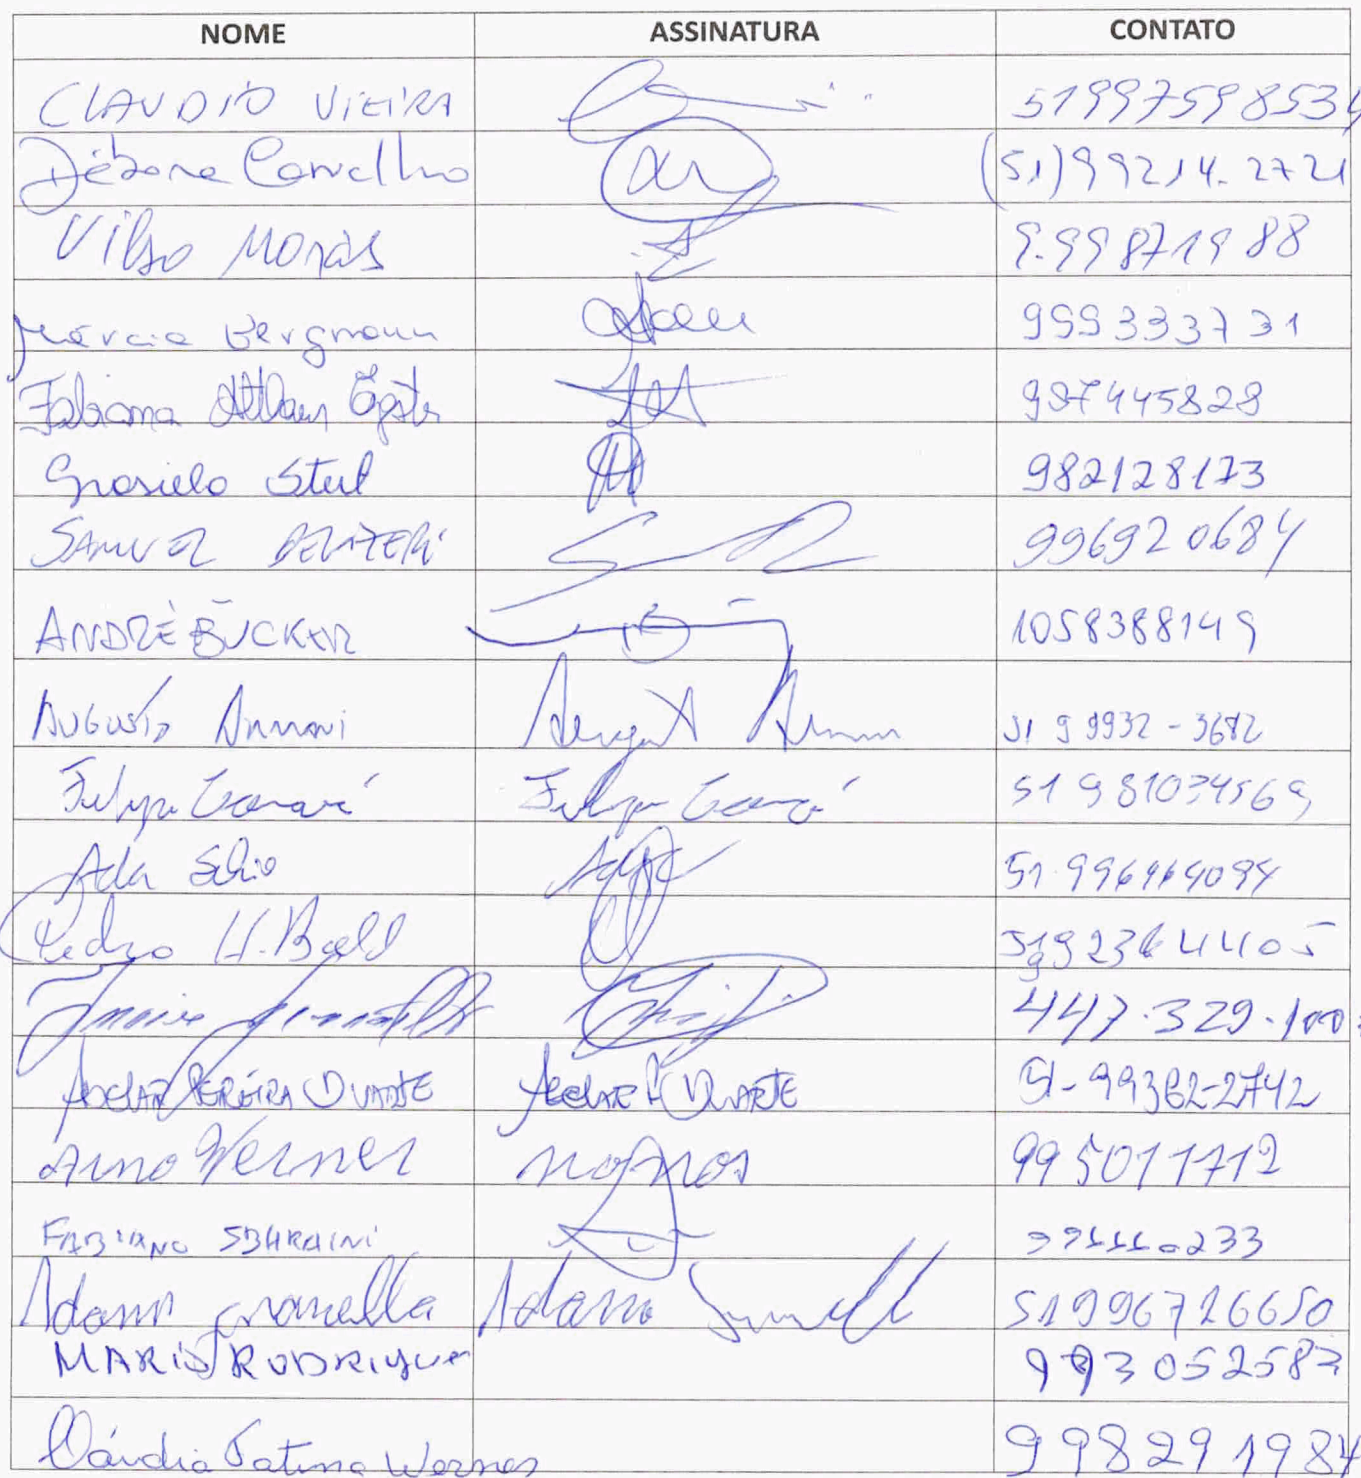 NOME ASSINATURA CONTATO
CLAUDIO VIEIRA 51997598534
Débora Carvalho (51)99214.2721
Vilso Morás 9.99871988
Márcia Bergmann 999333731
Fabiana 987445828
Grasiela Steil 982128173
SAMUEL 996920684
ANDRÉ BÜCKER 1058388149
AUGUSTO Annoni 51 9 9932-3672
Felipe 51 981034569
Ada Schio 51.996464094
Pedro H. Ball 4405
447.329.100
ADELAR PEREIRA DUARTE ADELAR P DUARTE 51-99362-2742
Arno Werner 995011712
FABIANO 233
Adamo Granella Adamo 51996726650
MARIO RODRIGUES 993052583
Cláudia Fatima Werner 998291984